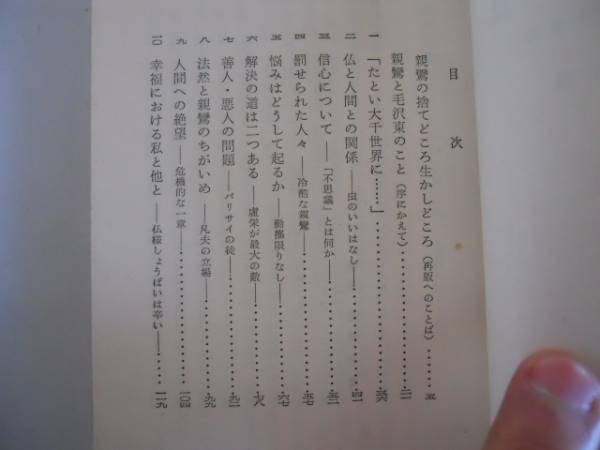 目次
親鸞の捨てどころ生かしどころ(再版へのことば)……五
親鸞と毛沢東のこと(序にかえて)……二一
一 「たとい大千世界に……」……三六
二 仏と人間との関係——虫のいいはなし——……四一
三 信心について——「不思議」とは何か——……五二
四 罰せられた人々——冷酷な親鸞——……五七
五 悩みはどうして起るか——動揺限りなし——……六七
六 解決の道は二つある——虚栄が最大の敵——……七八
七 善人・悪人の問題——パリサイの徒——……九一
八 法然と親鸞のちがいめ——凡夫の立場——……九九
九 人間への絶望——危機的な一章——……一〇四
一〇 幸福における私と他と——仏様しょうばいは辛い——……一一九